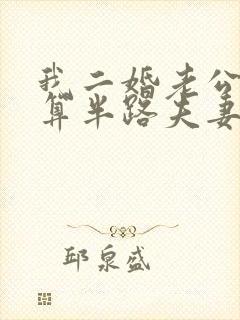 我二婚老公
算半路夫妻
邱泉盛